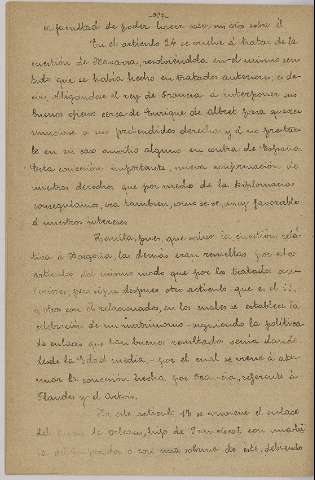 su facultad de poder hacer uso no otro sobre él
En el artículo 24 se vuelve á tratar de la
cuestión de Navarra, resolviéndola en el mismo sen-
tido que se había hecho en tratados anteriores, es de-
cir, obligándose el rey de Francia á interponer sus
buenos oficios cerca de Enrique de Albret para que re-
nunciase á sus pretendidos derechos y á no prestar-
le en su caso auxilio alguno en contra de España.
Esta concesión importante, nueva confirmación de
nuestros derechos que por medio de la diplomacia
conseguíamos, era también, como se ve, muy favorable
á nuestros intereses.
pues, que salvo la cuestión rela-
tiva á Borgoña, las demás eran resueltas por estos
artículos del mismo modo que por los tratados an-
teriores, pero sigue después otro artículo que es el
y otro con él relacionado, en los cuales se establece la
celebración de un matrimonio - siguiendo la política
de enlaces que tan buenos resultados venía dando
desde la Edad media - por el cual se viene á ate-
nuar la concesión hecha por Francia, referente á
Flandes y el Artois.
En este artículo se anuncia el enlace
del de Orleans, hijo de Francisco I con una hija
del emperador ó con una sobrina de éste, debiendo